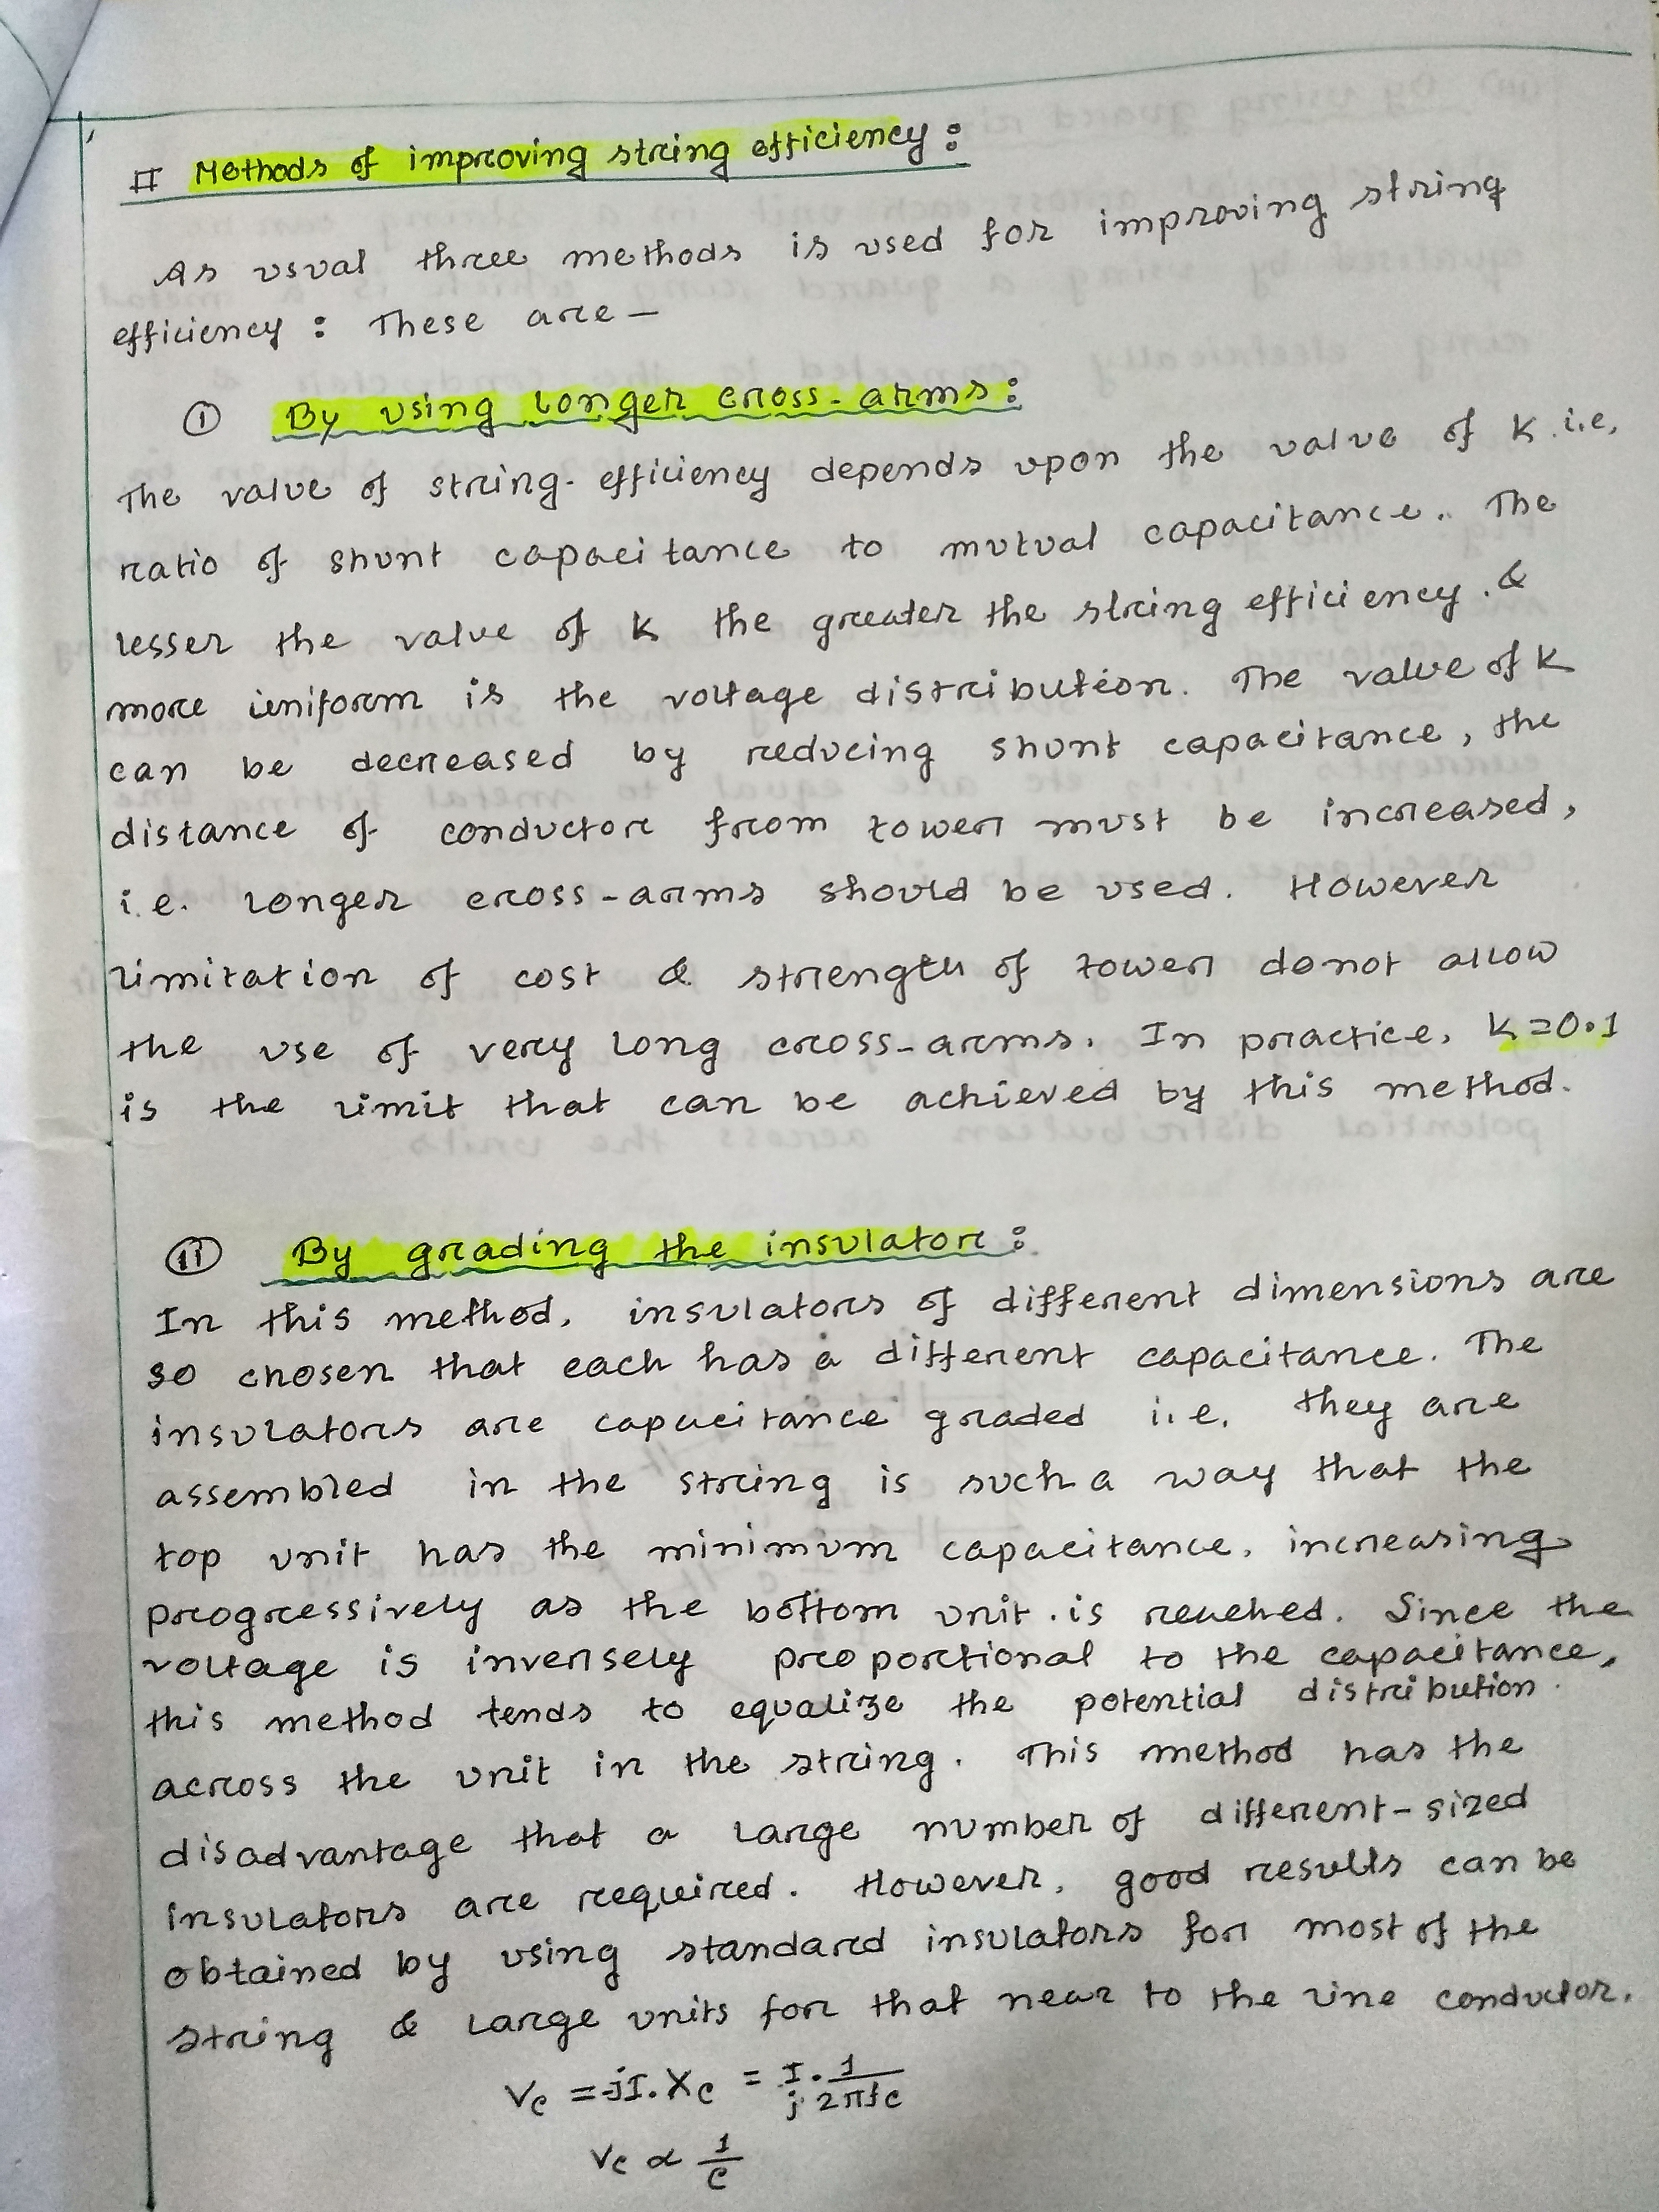 # Methods of improving string efficiency :
As usual three methods is used for improving string
efficiency : These are —
① By using longer cross-arms :
The value of string-efficiency depends upon the value of K i.e,
ratio of shunt capacitance to mutual capacitance. The
lesser the value of K the greater the string efficiency. &
more uniform is the voltage distribution. The value of K
can be decreased by reducing shunt capacitance, the
distance of conductor from tower must be increased,
i.e. longer cross-arms should be used. However
limitation of cost & strength of tower do not allow
the use of very long cross-arms. In practice, K=0.1
is the limit that can be achieved by this method.
⑪ By grading the insulator :
In this method, insulators of different dimensions are
so chosen that each has a different capacitance. The
insulators are capacitance graded i.e. they are
assembled in the string is such a way that the
top unit has the minimum capacitance, increasing
progressively as the bottom unit is reached. Since the
voltage is inversely proportional to the capacitance,
this method tends to equalize the potential distribution.
across the unit in the string. This method has the
disadvantage that a large number of different-sized
insulators are required. However, good results can be
obtained by using standard insulators for most of the
string & large units for that near to the line conductor.
Vc = -jI.Xc = I/j . 1/2πfc
Vc ∝ 1/c